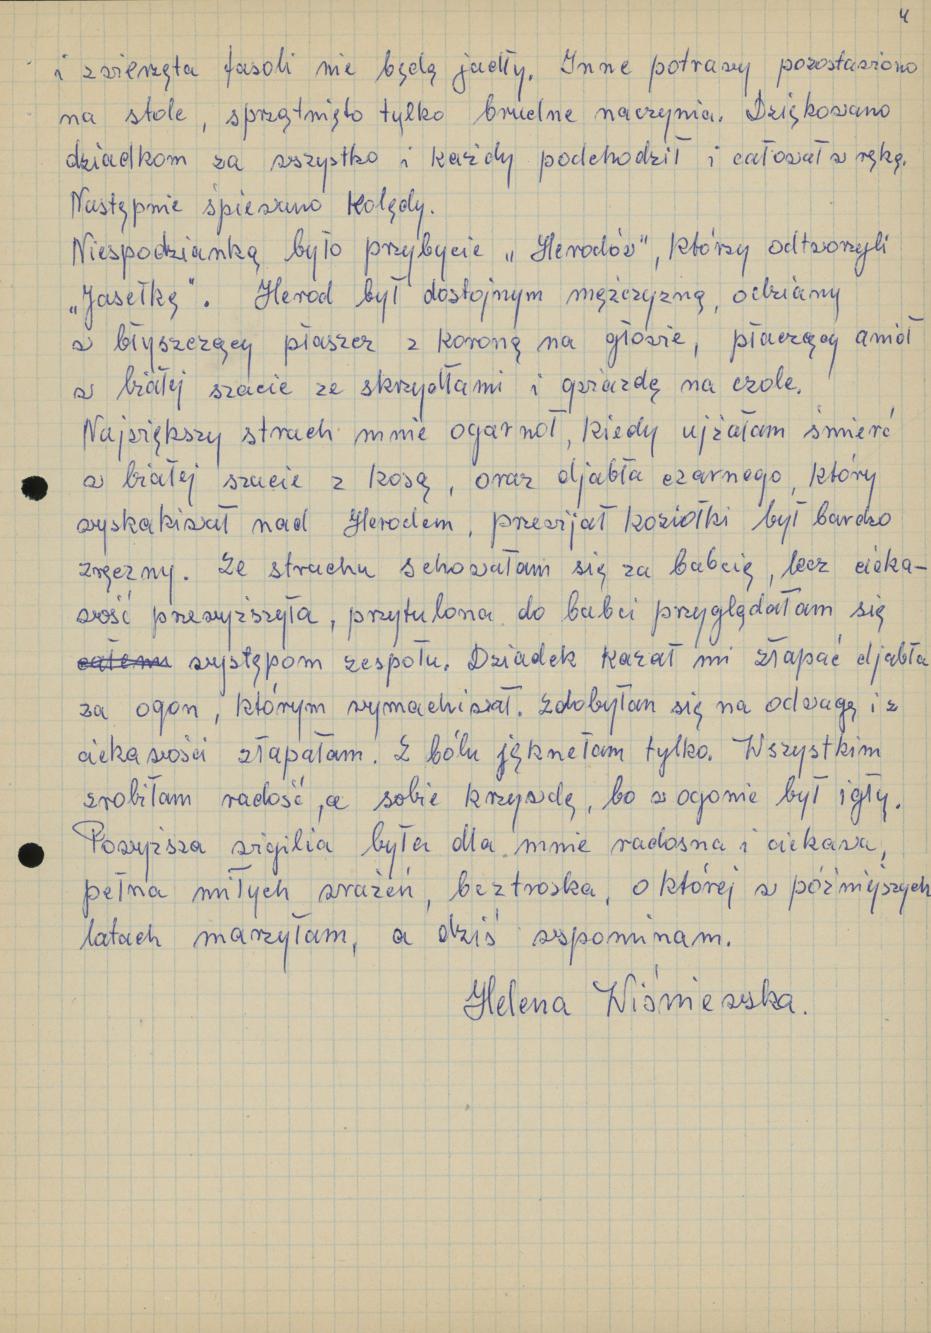 4
i zwierzęta fasoli nie będą jadły. Inne potrawy pozostawiono
na stole, sprzątnięto tylko brudne naczynia. Dziękowano
dziadkom za wszystko i każdy podchodził i całował w rękę.
Następnie śpiewano kolędy.
Niespodzianką było przybycie „Herodów", którzy odtworzyli
„Jasełkę". Herod był dostojnym mężczyzną, odziany
w błyszczący płaszcz z koroną na głowie, płaczący anioł
w białej szacie ze skrzydłami i gwiazdą na czole.
Największy strach mnie ogarnoł, kiedy ujżałam śmierć
w białej szacie z kosą, oraz djabła czarnego, który
wyskakiwał nad Herodem, przewijał koziołki był bardzo
zręczny. Ze strachu schowałam się za babcię, lecz cieka-
wość przewyższyła, przytulona do babci przyglądałam się
całemu występom zespołu. Dziadek kazał mi złapać djabła
za ogon, którym wymachiwał. Zdobyłam się na odwagę i z
ciekawości złapałam. Z bólu jęknełam tylko. Wszystkim
zrobiłam radość, a sobie krzywdę, bo w ogonie był igły.
Powyższa wigilia była dla mnie radosna i ciekawa,
pełna miłych wrażeń, beztroska, o której w póżniejszych
latach marzyłam, a dziś wspominam.
Helena Wiśniewska.